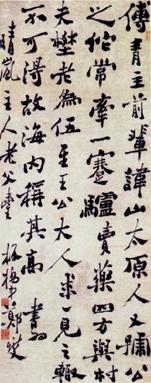 傅青主前輩諱山太原人又號公
之佗常牽一蹇驢賣藥四方與村
夫樊老為伍至王公大人求一見之輒
不可得故海内稱其高 書
晴嵐主人老父臺 板橋鄭燮